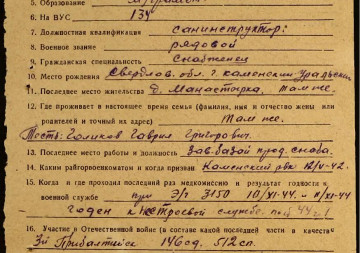 5. Образование
6. На ВУС 134
7. Должностная квалификация санинструктор:
8. Военное звание рядовой
9. Гражданская специальность снабженец
10. Место рождения Свердлов. обл. г. Каменский Уральск
11. Последнее место жительства Д. Манасторка, там же.
12. Где проживает в настоящее время семья (фамилия, имя и отчество жены или
родителей и точный их адрес) Там же.
Тесть: Голиков Гаврил Григорович.
13. Последнее место работы и должность Зав. базой прод. снаба.
14. Каким райгорвоенкоматом и когда призван Каменский рвк 12/V-42.
15. Когда и где проходил последний раз медкомиссию и результат годности к
военной службе при Э/г 3150 10/XI-44.
годен к нестроевой службе
16. Участие в Отечественной войне (в составе какой последней части в качестве
3й Прибалтийск 146сд. 512сп.